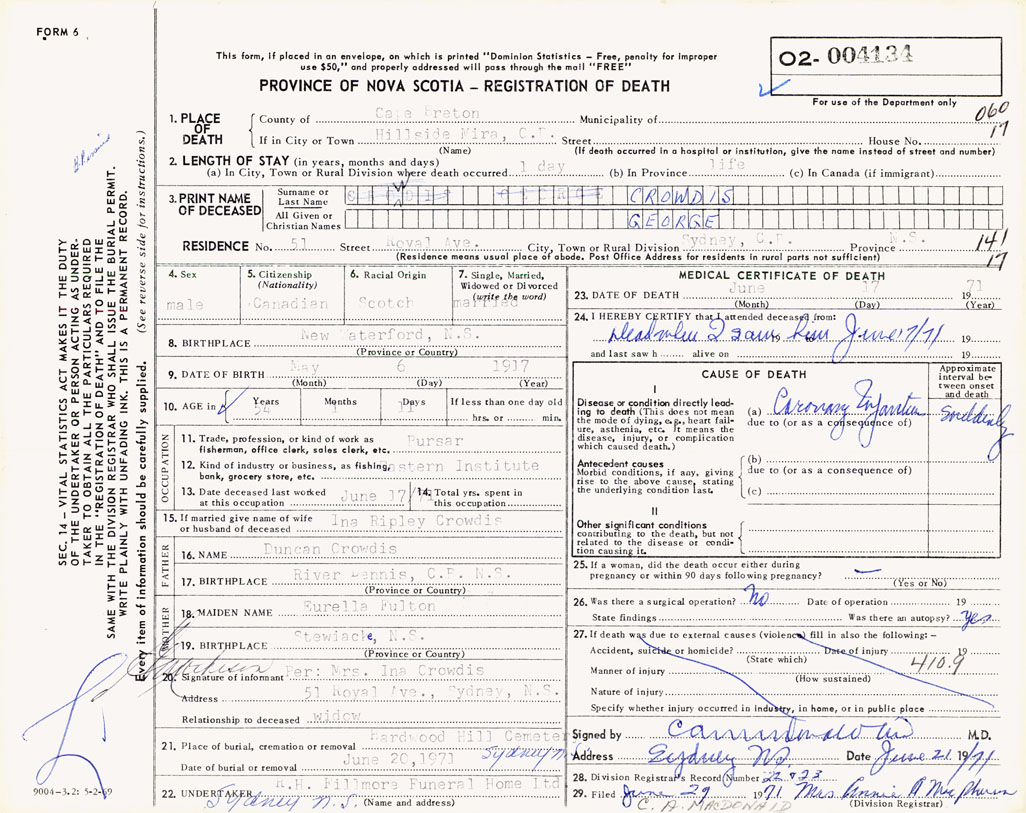 FORM 6
This form, if placed in an envelope, on which is printed "Dominion Statistics – Free, penalty for improper
use $50," and properly addressed will pass through the mail "FREE"
PROVINCE OF NOVA SCOTIA – REGISTRATION OF DEATH
02- 004134
For use of the Department only
060
17
1. PLACE OF DEATH
County of Cape Breton Municipality of
If in City or Town Hillside Mira, C.B. Street House No.
(Name) (If death occurred in a hospital or institution, give the name instead of street and number)
2. LENGTH OF STAY (in years, months and days)
(a) In City, Town or Rural Division where death occurred 1 day (b) In Province life (c) In Canada (if immigrant)
3. PRINT NAME OF DECEASED
Surname or Last Name CROWDIS
All Given or Christian Names GEORGE
RESIDENCE No. 51 Street Royal Ave. City, Town or Rural Division Sydney, C.B. Province N.S.
(Residence means usual place of abode. Post Office Address for residents in rural parts not sufficient)
141
17
4. Sex
male
5. Citizenship (Nationality)
Canadian
6. Racial Origin
Scotch
7. Single, Married, Widowed or Divorced (write the word)
married
8. BIRTHPLACE New Waterford, N.S.
(Province or Country)
9. DATE OF BIRTH May 6 1917
(Month) (Day) (Year)
10. AGE in Years Months Days If less than one day old
54 1 11 hrs. or min.
OCCUPATION
11. Trade, profession, or kind of work as Bursar
fisherman, office clerk, sales clerk, etc.
12. Kind of industry or business, as fishing, Eastern Institute
bank, grocery store, etc.
13. Date deceased last worked at this occupation June 17/71
14. Total yrs. spent in this occupation
15. If married give name of wife or husband of deceased Ina Ripley Crowdis
FATHER
16. NAME Duncan Crowdis
17. BIRTHPLACE River Dennis, C.B. N.S.
(Province or Country)
MOTHER
18. MAIDEN NAME Eurella Fulton
19. BIRTHPLACE Stewiacke, N.S.
(Province or Country)
20. Signature of informant Per: Mrs. Ina Crowdis
Address 51 Royal Ave., Sydney, N.S.
Relationship to deceased widow
21. Place of burial, cremation or removal Hardwood Hill Cemetery
Date of burial or removal June 20, 1971 Sydney N.S.
22. UNDERTAKER A.H. Fillmore Funeral Home ltd
Sydney N.S. (Name and address)
MEDICAL CERTIFICATE OF DEATH
23. DATE OF DEATH June 17 19 71
(Month) (Day) (Year)
24. I HEREBY CERTIFY that I attended deceased from:
June 17/71
and last saw h alive on 19
CAUSE OF DEATH
Approximate interval between onset and death
I
Disease or condition directly leading to death (This does not mean the mode of dying, e.g., heart failure, asthenia, etc. It means the disease, injury, or complication which caused death.)
(a) Coronary Infarction Suddenly
due to (or as a consequence of)
Antecedent causes
Morbid conditions, if any, giving rise to the above cause, stating the underlying condition last.
(b)
due to (or as a consequence of)
(c)
II
Other significant conditions
contributing to the death, but not related to the disease or condition causing it.
25. If a woman, did the death occur either during
pregnancy or within 90 days following pregnancy?
(Yes or No)
26. Was there a surgical operation? No Date of operation 19
State findings Was there an autopsy? yes
27. If death was due to external causes (violence) fill in also the following: –
Accident, suicide or homicide? Date of injury 19
(State which)
410.9
Manner of injury
(How sustained)
Nature of injury
Specify whether injury occurred in industry, in home, or in public place
Signed by M.D.
Address Sydney N.S. Date June 21 19/71
28. Division Registrar's Record Number
29. Filed June 29 1971 Mrs Annie A MacPherson
C. A. MACDONALD (Division Registrar)
SEC. 14 – VITAL STATISTICS ACT MAKES IT THE DUTY
OF THE UNDERTAKER OR PERSON ACTING AS UNDER-
TAKER TO OBTAIN ALL THE PARTICULARS REQUIRED
IN THE "REGISTRATION OF DEATH" AND TO FILE THE
SAME WITH THE DIVISION REGISTRAR WHO SHALL ISSUE THE BURIAL PERMIT.
WRITE PLAINLY WITH UNFADING INK. THIS IS A PERMANENT RECORD.
Every item of information should be carefully supplied. (See reverse side for instructions.)
9004-3.2: 5-2-69